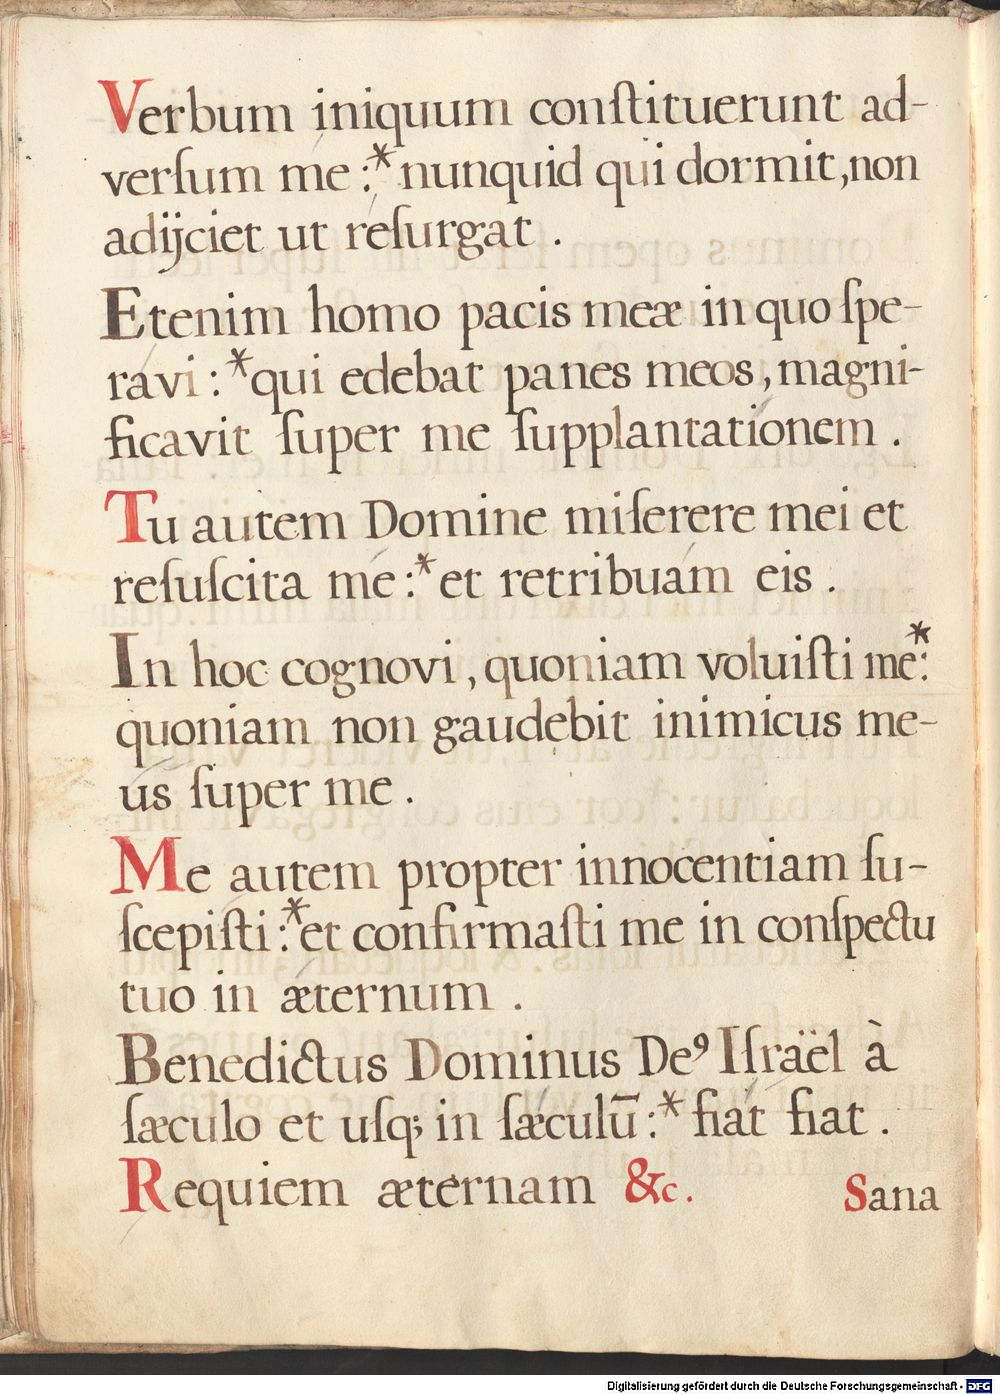 Verbum iniquum conſtituerunt ad-
verſum me :* nunquid qui dormit, non
adijciet ut reſurgat .
Etenim homo pacis meæ in quo ſpe-
ravi : * qui edebat panes meos, magni-
ficavit ſuper me ſupplantationem .
Tu autem Domine miſerere mei et
reſuſcita me :* et retribuam eis .
In hoc cognovi, quoniam voluiſti me :*
quoniam non gaudebit inimicus me-
us ſuper me .
Me autem propter innocentiam ſu-
ſcepiſti :* et confirmaſti me in conſpectu
tuo in æternum .
Benedictus Dominus Deꝰ Iſraël à
ſæculo et uſq; in ſæculū :* fiat fiat .
Requiem æternam &c.
Sana
Digitalisierung gefördert durch die Deutsche Forschungsgemeinschaft - DFG